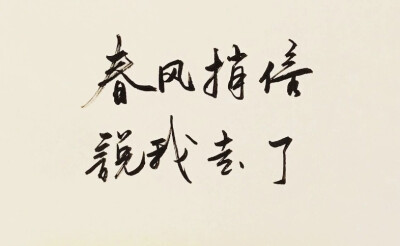 春风捎信
說我去了